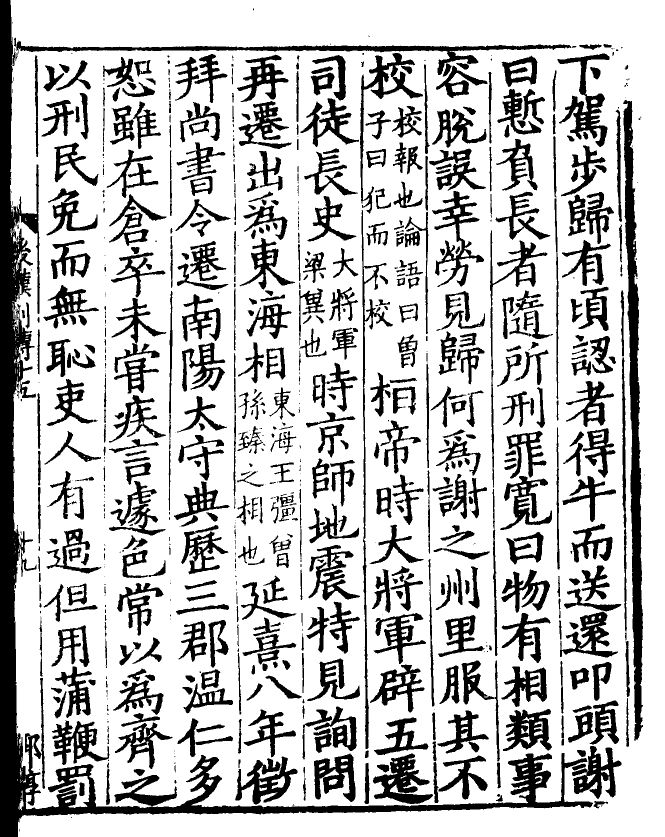 下駕步歸有頃認者得牛而送還叩頭謝
曰慙負長者隨所刑罪寬曰物有相類事
容脫誤幸勞見歸何爲謝之州里服其不
校校報也論語曰曾子曰犯而不校桓帝時大將軍辟五遷
司徒長史大將軍梁冀也時京師地震特見詢問
再遷出爲東海相東海王彊曾孫臻之相也延熹八年徵
拜尚書令遷南陽太守典歷三郡温仁多
恕雖在倉卒未甞疾言遽色常以爲齊之
以刑民免而無恥吏人有過但用蒲鞭罰
後漢列傳十五
十九